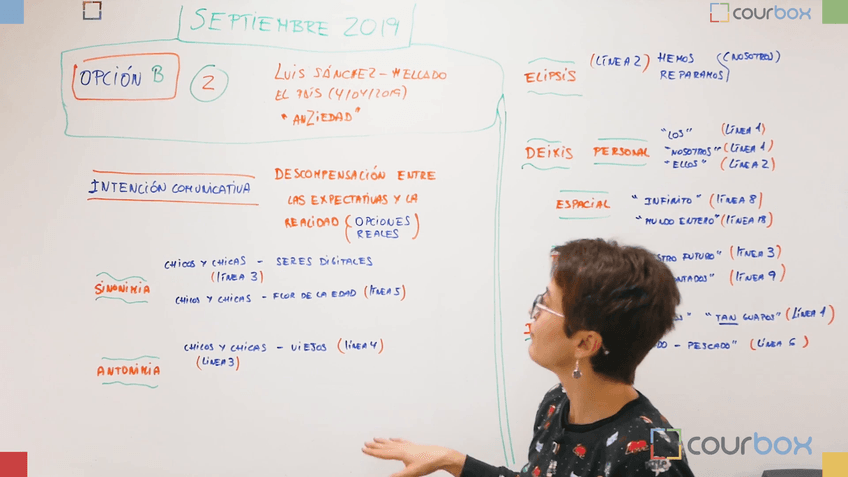 courbox
SEPTIEMBRE 2019
OPCIÓN B
2
LUIS SÁNCHEZ-MELLADO
EL PAÍS (4/04/2019)
"ANZIEDAD"
INTENCIÓN COMUNICATIVA
DESCOMPENSACIÓN ENTRE
LAS EXPECTATIVAS Y LA
REALIDAD (OPCIONES
REALES)
SINONIMIA
CHICOS Y CHICAS - SERES DIGITALES
(LÍNEA 3)
CHICOS Y CHICAS - FLOR DE LA EDAD (LÍNEA 5)
ANTONIMIA
CHICOS Y CHICAS - VIEJOS (LÍNEA 4)
(LÍNEA 3)
ELIPSIS
(LÍNEA 2) HEMOS (NOSOTROS)
REPARAMOS
DEIXIS PERSONAL
"LOS" (LÍNEA 1)
"NOSOTROS" (LÍNEA 1)
"ELLOS" (LÍNEA 2)
ESPACIAL
"INFINITO" (LÍNEA 8)
"MUNDO ENTERO" (LÍNEA 18)
FUTURO" (LÍNEA 3)
(LÍNEA 9)
"TAN GUAPOS" (LÍNEA 1)
- PESCADO" (LÍNEA 6)
courbox